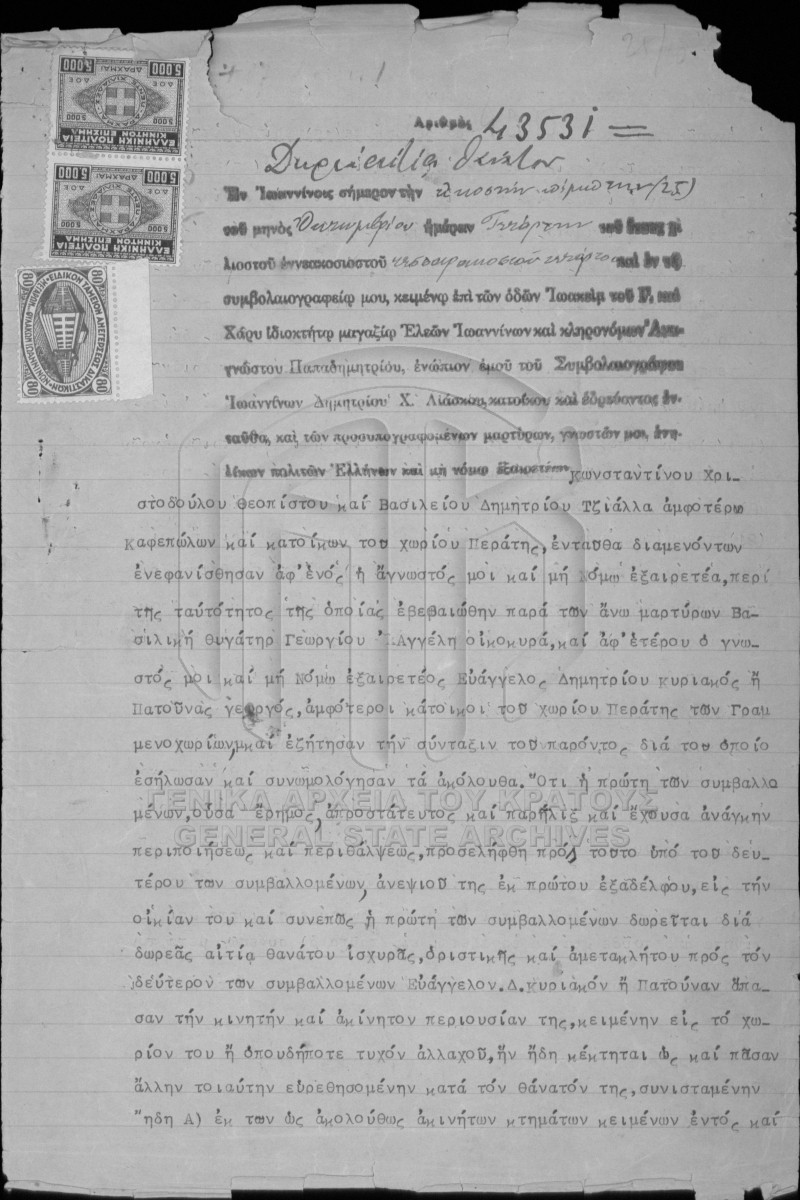 5.000 ΔΡΑΧΜΑΙ 5.000
ΕΛΛΗΝΙΚΗ ΠΟΛΙΤΕΙΑ
ΚΙΝΗΤΟΝ ΕΠΙΣΗΜΑ
5.000 ΔΡΑΧΜΑΙ 5.000
ΕΛΛΗΝΙΚΗ ΠΟΛΙΤΕΙΑ
ΚΙΝΗΤΟΝ ΕΠΙΣΗΜΑ
80 80
Αριθμὸς 43531
Δωρεά αἰτίᾳ θανάτου
Ἐν Ἰωαννίνοις σήμερον τὴν εἰκοστήν πέμπτην (25)
τοῦ μηνὸς Ὀκτωμβρίου ἡμέραν Τετάρτην τοῦ ἔτους χι
λιοστοῦ ἐννεακοσιοστοῦ τεσσαρακοστοῦ τετάρτου καὶ ἐν τῷ
συμβολαιογραφείῳ μου, κειμένῳ ἐπὶ τῶν ὁδῶν Ἰωακεὶμ τοῦ Γ. καὶ
Χάρυ ἰδιοκτήτῳ μαγαζίῳ Ἐλεῶν Ἰωαννίνων καὶ κληρονόμων Ἀνα-
γνώστου Παπαδημητρίου, ἐνώπιον ἐμοῦ τοῦ Συμβολαιογράφου
Ἰωαννίνων Δημητρίου Χ. Λιάσκου, κατοίκου καὶ ἑδρεύοντος ἐν-
ταῦθα, καὶ τῶν προσυπογραφομένων μαρτύρων, γνωστῶν μοι, ἐνη-
λίκων πολιτῶν Ἑλλήνων καὶ μὴ νόμῳ ἐξαιρετέων κωνσταντίνου Χρι-
στοδούλου Θεοπίστου καί Βασιλείου Δημητρίου Τζιάλλα ἀμφοτέρω
καφεπώλων καί κατοίκων τοῦ χωρίου Περάτης, ἐνταῦθα διαμενόντων
ἐνεφανίσθησαν ἀφ'ἑνός ἡ ἄγνωστός μοι καί μή Νόμω ἐξαιρετέα, περί
τῆς ταὐτότητος τῆς ὁποίας ἐβεβαιώθην παρά τῶν ἄνω μαρτύρων Βα-
σιλική θυγάτηρ Γεωργίου Ἀγγέλη οἰκοκυρά, καί ἀφ'ἑτέρου ὁ γνω-
στός μοι καί μή Νόμω ἐξαιρετέος Εὐάγγελος Δημητρίου κυριακός ἤ
Πατοῦνας γεωργός, ἀμφότεροι κάτοικοι τοῦ χωρίου Περάτης τῶν Γραμ
μενοχωρίων, καί ἐζήτησαν τήν σύνταξιν τοῦ παρόντος διά τοῦ ὁποίο
ἐδήλωσαν καί συνωμολόγησαν τά ἀκόλουθα. Ὅτι ἡ πρώτη τῶν συμβαλλο
μένων, οὖσα ἔρημος, ἀπροστάτευτος καί παρῆλιξ καί ἔχουσα ἀνάγκην
περιποιήσεως καί περιθάλψεως, προσελήφθη πρός τοῦτο ὑπό τοῦ δευ-
τέρου τῶν συμβαλλομένων, ἀνεψιοῦ της ἐκ πρώτου ἐξαδέλφου, εἰς τήν
οἰκίαν του καί συνεπῶς ἡ πρώτη τῶν συμβαλλομένων δωρεῖται διά
δωρεᾶς αἰτίᾳ θανάτου ἰσχυρᾶς, ὁριστικῆς καί ἀμετακλήτου πρός τόν
δεύτερον τῶν συμβαλλομένων Εὐάγγελον. Δ. κυριακόν ἤ Πατούναν ἅπα-
σαν τήν κινητήν καί ἀκίνητον περιουσίαν της, κειμένην εἰς τό χω-
ρίον του ἤ ὁπουδήποτε τυχόν ἀλλαχοῦ, ἥν ἤδη κέκτηται ὡς καί πᾶσαν
ἄλλην τοιαύτην εὑρεθησομένην κατά τόν θάνατόν της, συνισταμένην
ἤδη Α) ἐκ τῶν ὡς ἀκολούθως ἀκινήτων κτημάτων κειμένων ἐντός καί
ΓΕΝΙΚΑ ΑΡΧΕΙΑ ΤΟΥ ΚΡΑΤΟΥΣ
GENERAL STATE ARCHIVES